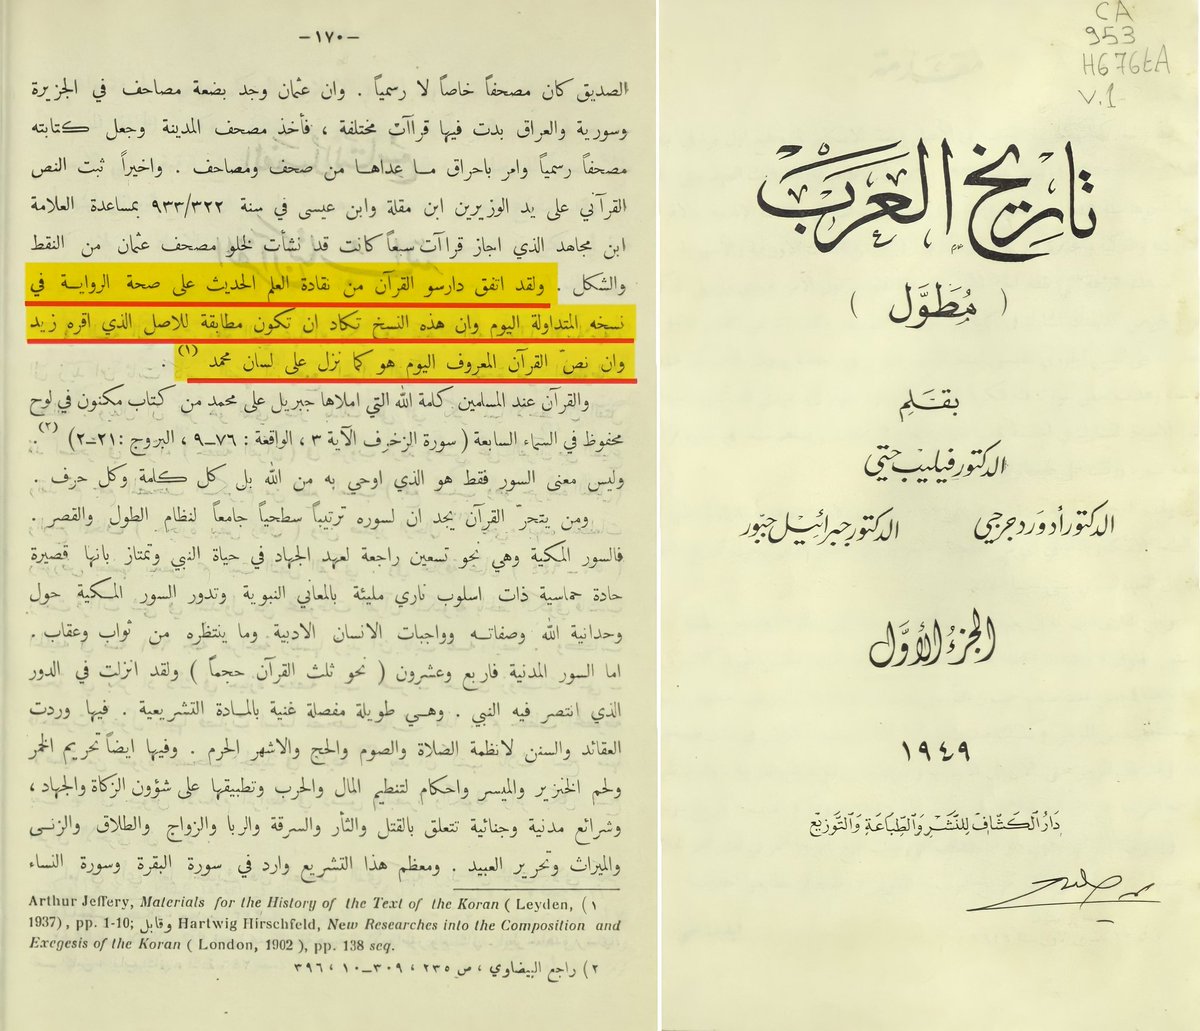 -١٧٠-
الصديق كان مصحفاً خاصاً لا رسمياً . وان عثمان وجد بضعة مصاحف في الجزيرة
وسورية والعراق بدت فيها قراآت مختلفة ، فأخذ مصحف المدينة وجعل كتابته
مصحفاً رسمياً وامر باحراق مـا عداهـا من صحف ومصاحف . واخيراً ثبت النص
القرآني على يد الوزيرين ابن مقلة وابن عيسى في سنة ٩٣٣/٣٢٢ بمساعدة العلامة
ابن مجاهد الذي اجاز قراآت سبعاً كانت قد نشأت لخلو مصحف عثمان من النقط
والشكل . ولقد اتفق دارسو القرآن من نقادة العلم الحديث على صحة الروايـة في
نسخه المتداولة اليوم وان هذه النسخ تكاد ان تكون مطابقة للاصل الذي اقره زيد
وان نصّ القرآن المعروف اليوم هو كما نزل على لسان محمد (١) .
والقرآن عند المسلمين كلمة الله التي املاها جبريل على محمد من كتاب مكنون في لوح
محفوظ في السماء السابعة ( سورة الزخرف الآية ٣ ، الواقعة : ٧٦-٩ ، البروج : ٢١-٢ ) (٢).
وليس معنى السور فقط هو الذي اوحي به من الله بل كل كلمة وكل حرف .
ومن يتحرّ القرآن يجد ان لسوره ترتيباً سطحياً جامعاً لنظام الطول والقصر .
فالسور المكية وهي نحو تسعين راجعة لعهد الجهاد في حياة النبي وتمتاز بانها قصيرة
حادة حماسية ذات اسلوب ناري مليئة بالمعاني النبوية وتدور السور المكية حول
وحدانية الله وصفاتـه وواجبات الانسان الادبية وما ينتظره من ثواب وعقاب .
اما السور المدنية فاربع وعشرون ( نحو ثلث القرآن حجماً ) ولقد انزلت في الدور
الذي انتصر فيه النبي . وهـي طويلة مفصلة غنية بالمـادة التشريعية . فيها وردت
العقائد والسنن لانظمة الصلاة والصوم والحج والاشهر الحرم . وفيها ايضاً تحريم الخمر
ولحم الخنزير والميسر واحكام لتنظيم المال والحرب وتطبيقها على شؤون الزكاة والجهاد ،
وشرائع مدنية وجنائية تتعلق بالقتل والثأر والسرقة والربا والزواج والطلاق والزنـى
والميراث وتحرير العبيد . ومعظم هذا التشريع وارد في سورة البقرة وسورة النساء
Arthur Jeffery, Materials for the History of the Text of the Koran ( Leyden, (١
1937), pp. 1-10; وقابل Hartwig Hirschfeld, New Researches into the Composition and
Exegesis of the Koran ( London, 1902 ), pp. 138 seq.
٢) راجع البيضاوي ، ص ٢٣٥ ، ٣٠٩-١٠ ، ٣٩٦
CA
953
H676tA
V.1
تاريخ العرب
( مُطَوَّل )
بقلم
الدكتور فيليب حتي
الدكتور أدورد جرجي الدكتور جبرائيل جبور
الجزء الأول
١٩٤٩
دار الكشاف للنشر والطباعة والتوزيع